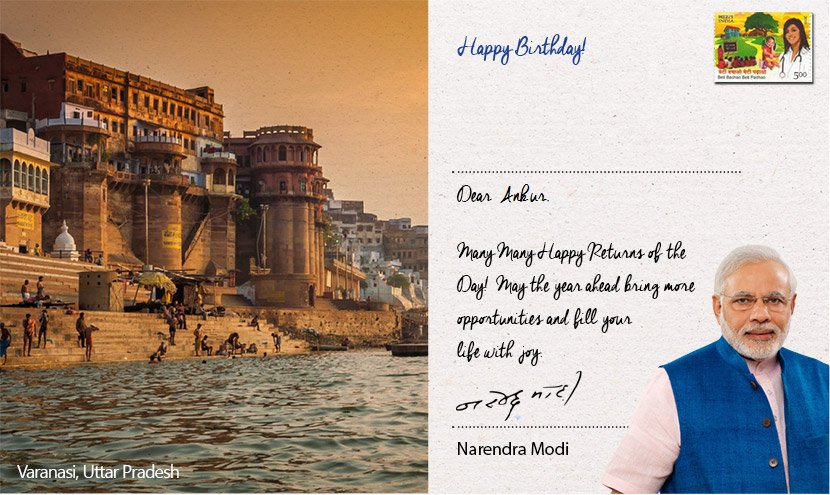 Happy Birthday!
भारत INDIA
बेटी बचाओ बेटी पढ़ाओ
Beti Bachao Beti Padhao
500
Dear Ankur,
Many Many Happy Returns of the
Day! May the year ahead bring more
opportunities and fill your
life with joy.
नरेन्द्र मोदी
Narendra Modi
Varanasi, Uttar Pradesh